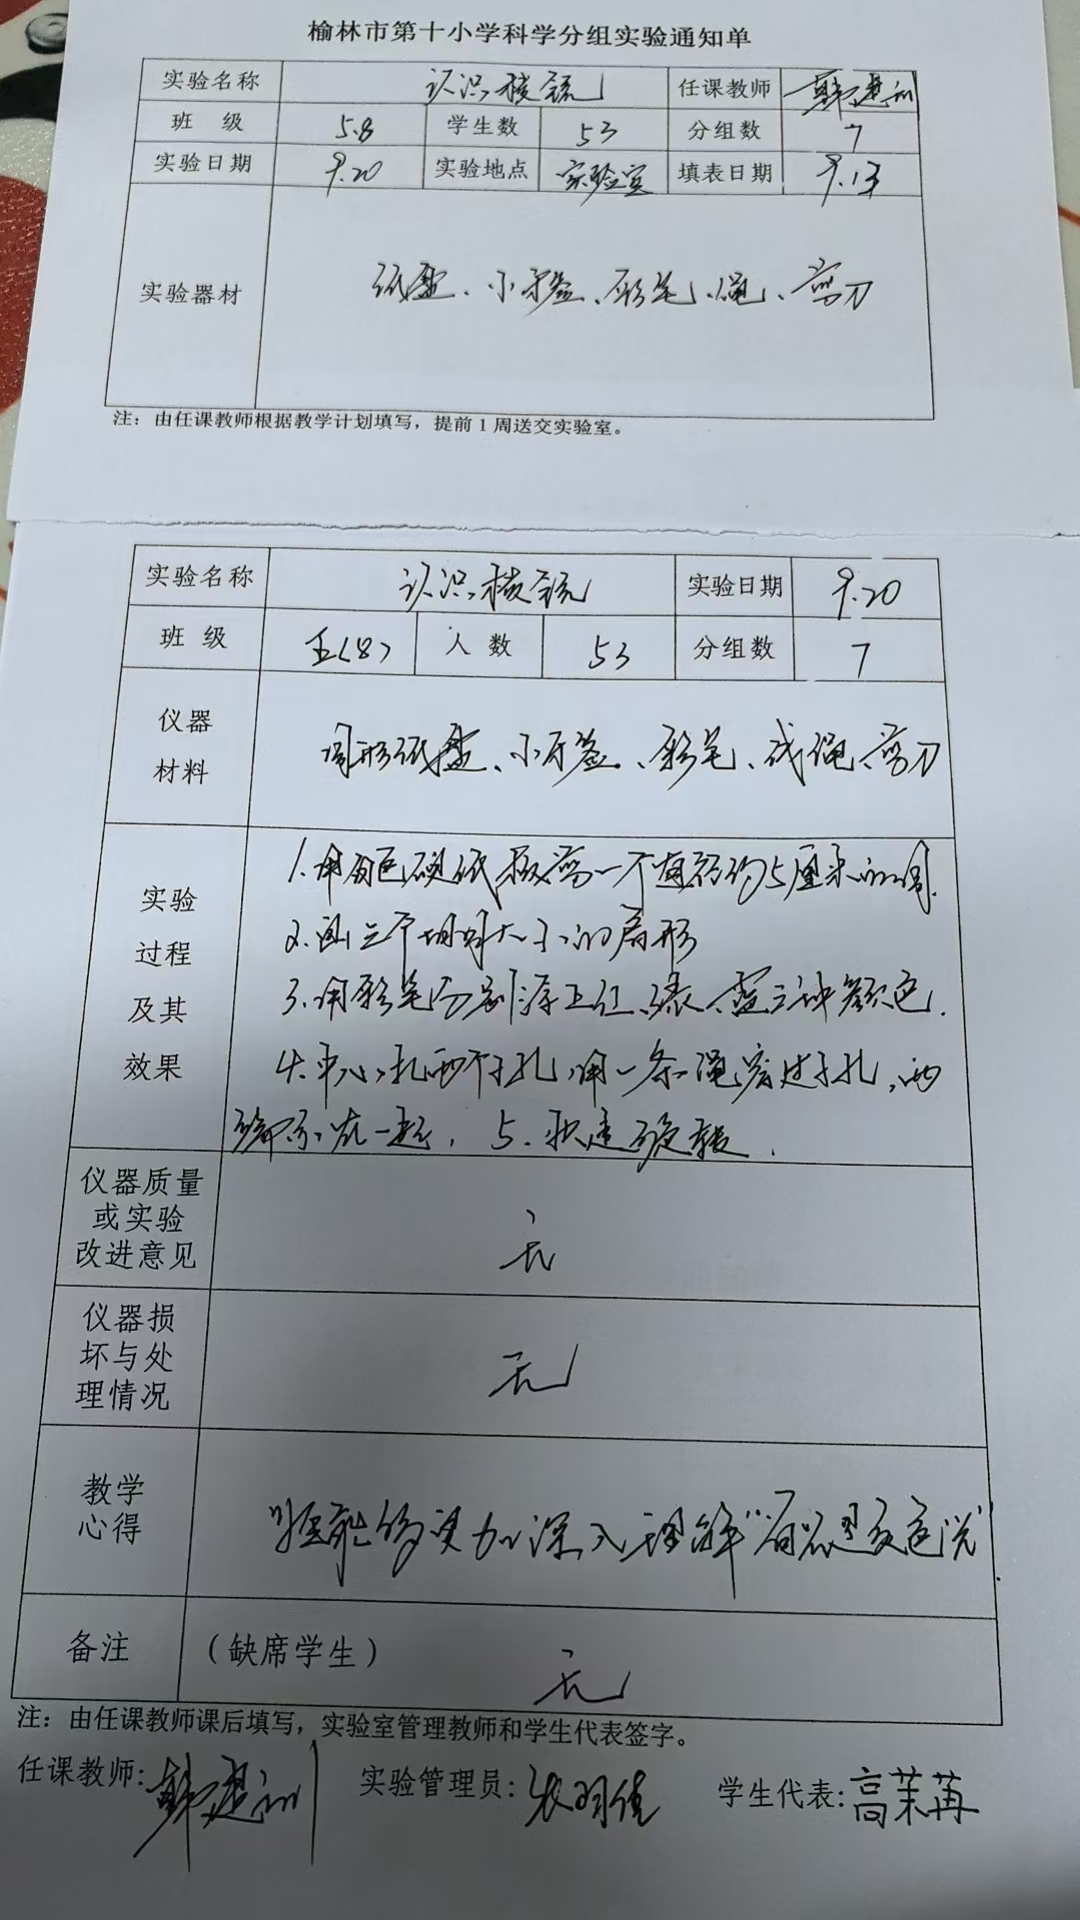 榆林市第十小学科学分组实验通知单
实验名称 认识棱镜 任课教师 韩建训
班 级 5.8 学生数 53 分组数 7
实验日期 9.20 实验地点 实验室 填表日期 9.13
实验器材 纸盘、小牙签、彩笔、绳、剪刀
注：由任课教师根据教学计划填写，提前1周送交实验室。
实验名称 认识棱镜 实验日期 9.20
班 级 五(8) 人 数 53 分组数 7
仪器
材料
圆形纸盘、小牙签、彩笔、线绳、剪刀
实验
过程
及其
效果
1.用白色硬纸板剪一个直径约5厘米的圆.
2.画三个相同大小的扇形
3.用彩笔分别涂上红、绿、蓝三种颜色.
4.中心扎两个小孔,用一条绳穿过小孔,两
端系在一起. 5.快速旋转.
仪器质量
或实验
改进意见
无
仪器损
坏与处
理情况
无
教学
心得
能够更加深入理解
备注 （缺席学生） 无
注：由任课教师课后填写，实验室管理教师和学生代表签字。
任课教师: 韩建训 实验管理员: 羽佳 学生代表: 高茉苒